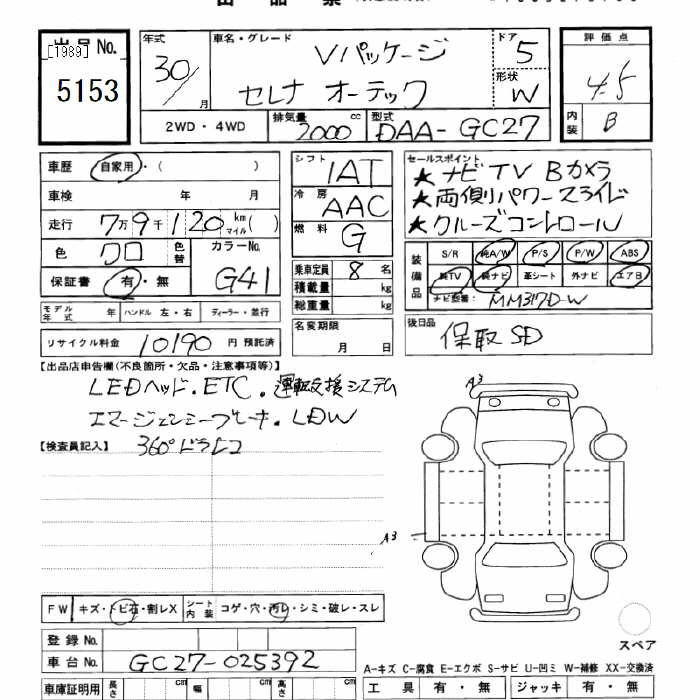 出品票
出品No.
[1989]
5153
年式
30/
月
車名・グレード
Vパッケージ
セレナ オーテック
ドア
5
形状
W
2WD・4WD
排気量
2000
cc
型式
DAA-GC27
評価点
4.5
内装
B
車歴
自家用・(
)
車検
年
月
走行
7万9千120
km
マイル
( )
色
クロ
色替
カラーNo.
G41
保証書
有・無
シフト
IAT
冷房
AAC
燃料
G
乗車定員
8名
積載量
kg
総重量
kg
セールスポイント
★ナビTV Bカメラ
★両側パワースライド
★クルーズコントロール
装備品
S/R 純A/W P/S P/W ABS
純TV 純ナビ 革シート 外ナビ エアB
ナビ型番:
MM317D-W
モデル年式
年
ハンドル 左・右
ディーラー・並行
リサイクル料金
10190
円 預託済
名変期限
月 日
後日品
保取 SD
【出品店申告欄(不良箇所・欠品・注意事項等)】
LEDヘッド.ETC.運転支援システム
エマージェンシーブレーキ.LDW
【検査員記入】
360°ドラレコ
A3
A3
FW
キズ・トビ石・割レX
シート内装
コゲ・穴・汚レ・シミ・破レ・スレ
スペア
登録No.
車台No.
GC27-025392
A-キズ C-腐食 E-エクボ S-サビ U-凹ミ W-補修 XX-交換済
車庫証明用
長さ
cm
幅
cm
高さ
cm
工具
有・無
ジャッキ
有・無